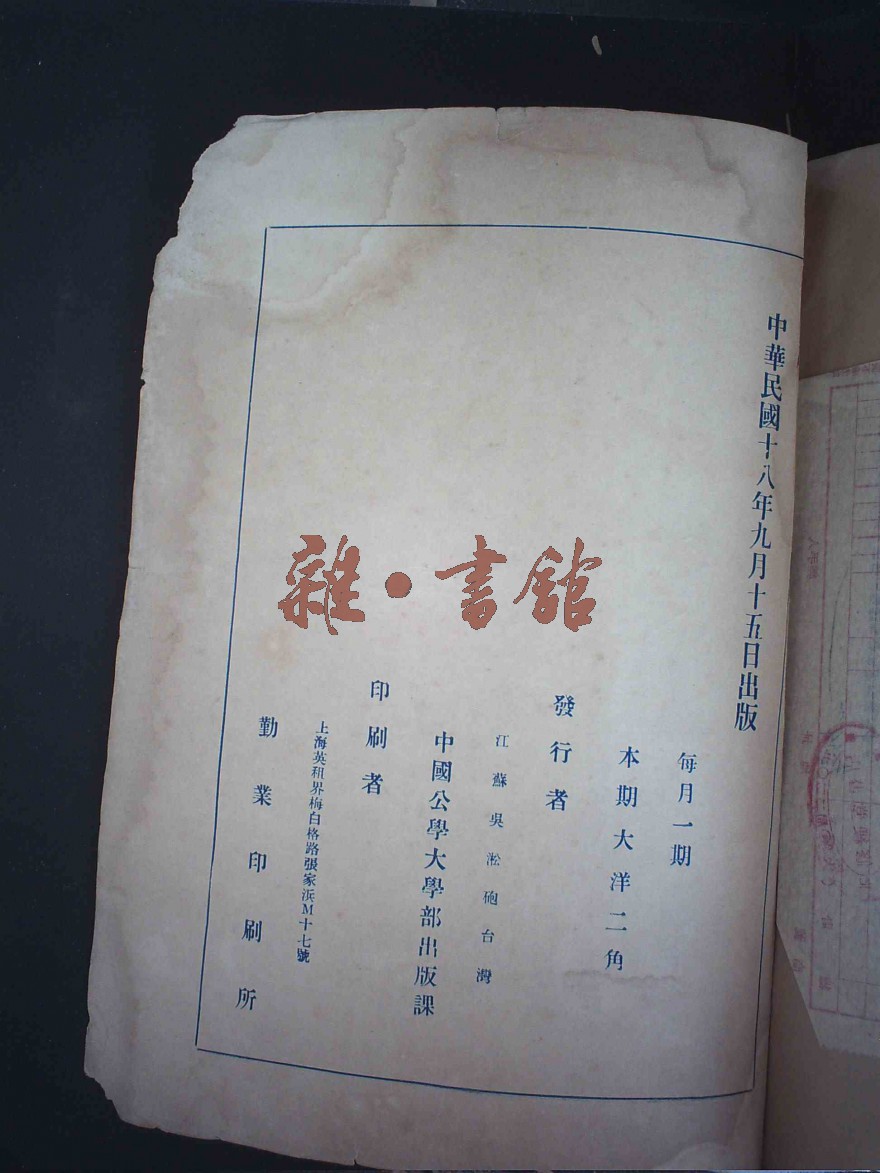 中華民國十八年九月十五日出版
每月一期
本期大洋二角
發行者
江蘇吳淞砲台灣
中國公學大學部出版課
印刷者
上海英租界梅白格路張家浜M十七號
勤業印刷所
雜·書館